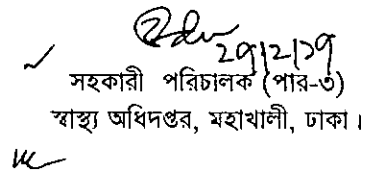 ২9|2|29
সহকারী পরিচালক (পার-৩)
স্বাস্থ্য অধিদপ্তর, মহাখালী, ঢাকা।